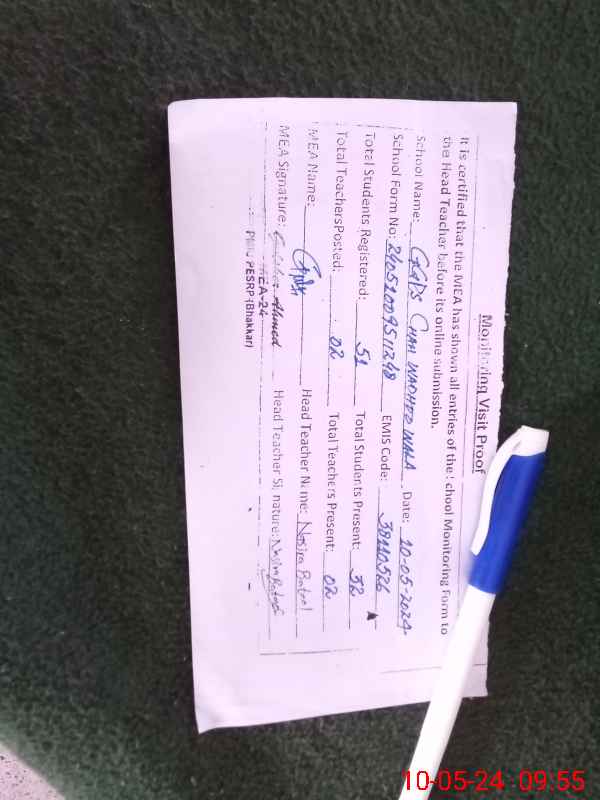 Monitoring Visit Proof
It is certified that the MEA has shown all entries of the School Monitoring Form to
the Head Teacher before its online submission.
School Name: GGPS CHAH WADHOO WALA Date: 10-05-2024
School Form No: EMIS Code: 38110526
Total Students Registered: 51 Total Students Present: 32
Total TeachersPosted: 02 Total Teachers Present: 02
MEA Name: Head Teacher Name: Nasira Batool
MEA Signature: Ahmed Head Teacher Signature: Nasira Batool
MEA-24
PMIU PESRP (Bhakkar)
10-05-24 09:55